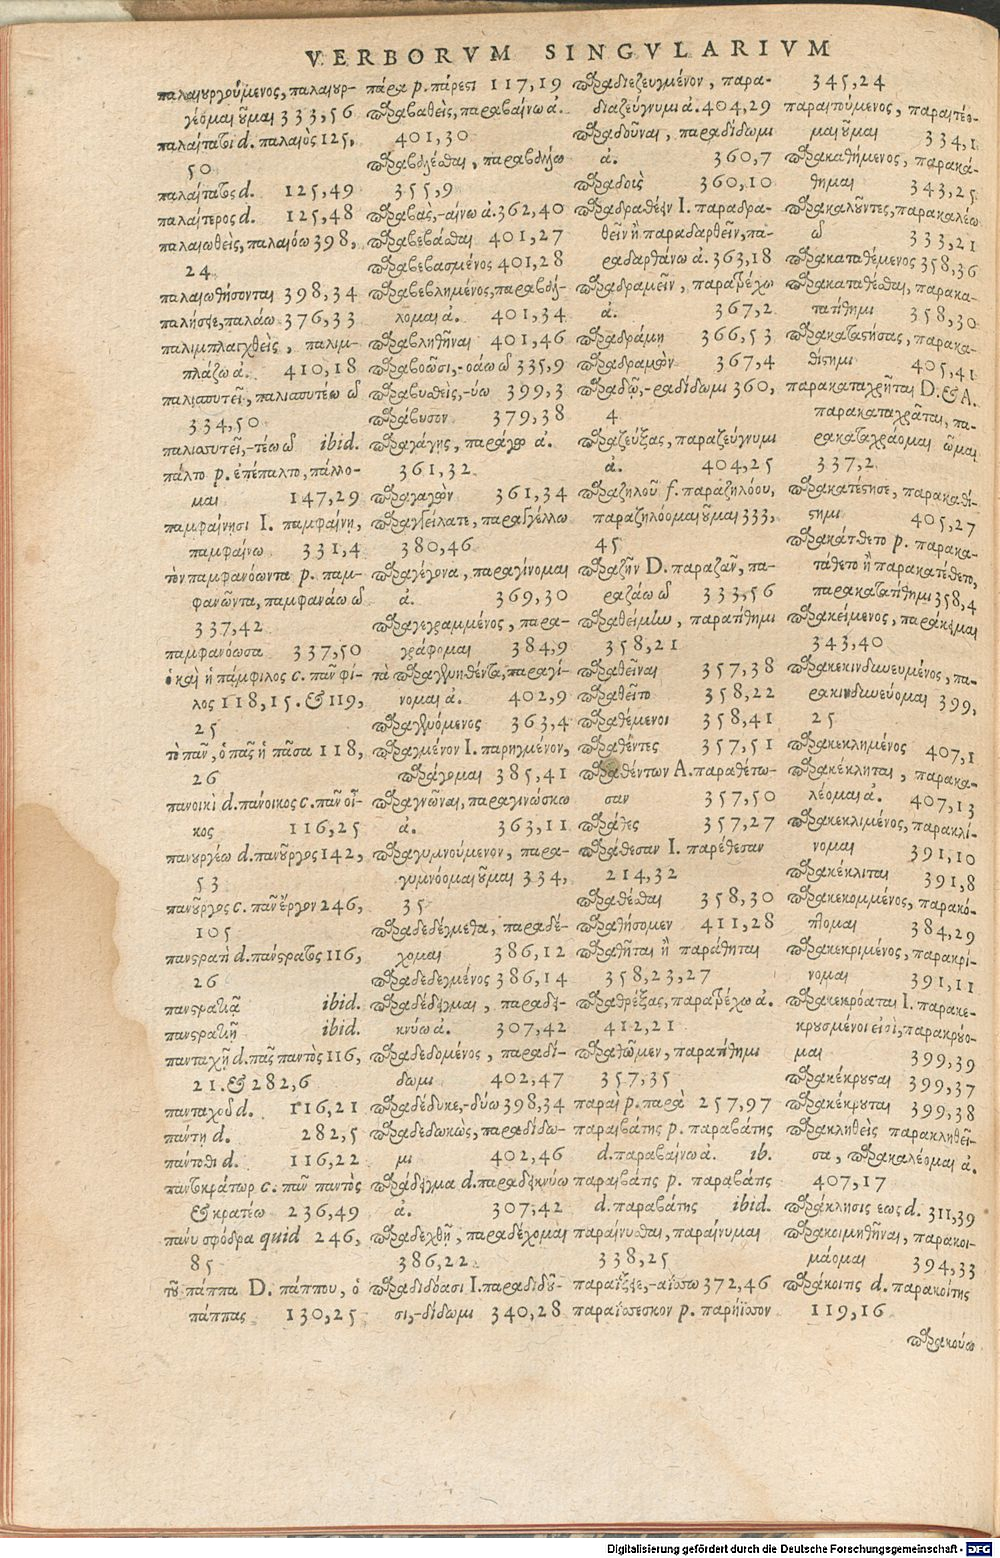 VERBORVM SINGVLARIVM
παλαιουργούμενος, παλαιουρ-
γέομαι οῦμαι 333,56
παλαίτατοι d. παλαιὸς 125,
50
παλαίτατος d. 125,49
παλαίτερος d. 125,48
παλαιωθεὶς, παλαιόω 398,
24
παλαιωθήσονται 398,34
παλήσειε, παλάω 376,33
παλιμπλαγχθεὶς, παλιμ-
πλάζω ἀ. 410,18
334,50
ibid.
πάλτο p. ἐπέπαλτο, πάλλο-
μαι 147,29
παμφαίνησι I. παμφαίνῃ,
παμφαίνω 331,4
τὸν παμφανόωντα p. παμ-
φανῶντα, παμφανάω ῶ
337,42
παμφανόωσα 337,50
ὁ καὶ ἡ πάμφιλος c. πᾶν φί-
λος 118,15. & 119,
25
τὸ πᾶν, ὁ πᾶς ἡ πᾶσα 118,
26
πανοικὶ d. πάνοικος c. πᾶν οἶ-
κος 116,25
πανουργέω d. πανοῦργος 142,
53
πανοῦργος c. πᾶν ἔργον 246,
105
πανστρατὶ d. πάνστρατος 116,
26
πανστρατιᾷ ibid.
πανστρατιῇ ibid.
πανταχῆ d. πᾶς παντὸς 116,
21. & 282,6
πανταχοῦ d. 116,21
πάντη d. 282,5
πάντοθι d. 116,22
παντοκράτωρ c. πᾶν παντὸς
& κρατέω 236,49
πάνυ σφόδρα quid 246,
85
τοῦ πάππα D. πάππου, ὁ
πάππας 130,25
πάρα p. πάρεστι 117,19
παραβαθεὶς, παραβαίνω ἀ.
401,30
355,9
παραβὰς, -αίνω ἀ. 362,40
παραβεβάσθαι 401,27
παραβεβασμένος 401,28
παραβεβλημένος, παραβάλ-
λομαι ἀ. 401,34
παραβληθῆναι 401,46
παραβοῶσι, -οάω ῶ 335,9
παραβυσθεὶς, -ύω 399,3
παράβυσον 379,38
παραγάγῃς, παράγω ἀ.
361,32
παραγαγὼν 361,34
παραγγείλατε, παραγγέλλω
380,46
παραγέγονα, παραγίνομαι
ἀ. 369,30
παραγεγραμμένος, παρα-
γράφομαι 384,9
τὰ παραγενηθέντα, παραγί-
νομαι ἀ. 402,9
παραγενόμενος 363,4
παραγμένον I. παρηγμένον,
παράγομαι 385,41
παραγνῶναι, παραγινώσκω
ἀ. 363,11
παραγυμνούμενον, παρα-
γυμνόομαι οῦμαι 334,
35
παραδεδέγμεθα, παραδέ-
χομαι 386,12
παραδεδεγμένος 386,14
παραδέδειγμαι, παραδει-
κνύω ἀ. 307,42
παραδεδομένος, παραδί-
δωμι 402,47
παραδέδυκε, -δύω 398,34
παραδεδωκὼς, παραδίδω-
μι 402,46
παράδειγμα d. παραδεικνύω
ἀ. 307,42
παραδεχθῇ, παραδέχομαι
386,22
παραδιδόασι I. παραδιδοῦ-
σι, -δίδωμι 340,28
παραδιεζευγμένον, παρα-
διαζεύγνυμι ἀ. 404,29
παραδοῦναι, παραδίδωμι
ἀ. 360,7
παραδοὺς 360,10
παραδραθέειν I. παραδρα-
θεῖν ἢ παραδαρθεῖν, πα-
ραδαρθάνω ἀ. 363,18
παραδραμεῖν, παρατρέχω
ἀ. 367,2
παραδράμῃ 366,53
παραδραμὼν 367,4
παραδῷ, -ραδίδωμι 360,
4
παραζεύξας, παραζεύγνυμι
ἀ. 404,25
παραζηλοῦ f. παραζηλόου,
παραζηλόομαι οῦμαι 333,
45
παραζῆν D. παραζᾶν, πα-
ραζάω ῶ 333,56
παραθείμην, παρατίθημι
358,21
παραθεῖναι 357,38
παραθεῖτο 358,22
παραθέμενοι 358,41
παραθέντες 357,51
παραθέντων A. παραθέτω-
σαν 357,50
παράθες 357,27
παράθεσαν I. παρέθεσαν
214,32
παραθέσθαι 358,30
παραθήσομεν 411,28
παραθῆται ἢ παράθηται
358,23,27
παραθρέξας, παρατρέχω ἀ.
412,21
παραθῶμεν, παρατίθημι
357,35
παραὶ p. παρὰ 257,97
παραιβάτης p. παραβάτης
d. παραβαίνω ἀ. ib.
παραιβάτις p. παραβάτις
d. παραβάτης ibid.
παραίνυσθαι, παραίνυμαι
338,25
παραΐξειε, -αΐσσω 372,46
παραΐσσεσκον p. παρήϊσσον
345,24
παραιτούμενος, παραιτέο-
μαι οῦμαι 334,1
παρακαθήμενος, παρακά-
θημαι 343,25
παρακαλοῦντες, παρακαλέω
ῶ 333,21
παρακαταθέμενος 358,36
παρακαταθέσθαι, παρακα-
τατίθημι 358,30
παρακαταστήσας, παρακα-
θίστημι 405,41
παρακαταχρῆται D. & A.
παρακαταχρᾶται, πα-
ρακαταχράομαι ῶμαι
337,2
παρακατέστησε, παρακαθί-
στημι 405,27
παρακάτθετο p. παρακα-
τάθετο ἢ παρακατέθετο,
παρακατατίθημι 358,4
παρακείμενος, παράκειμαι
343,40
παρακεκινδυνευμένος, πα-
ρακινδυνεύομαι 399,
25
παρακεκλημένος 407,1
παρακέκληται, παρακα-
λέομαι ἀ. 407,13
παρακεκλιμένος, παρακλί-
νομαι 391,10
παρακέκλιται 391,8
παρακεκομμένος, παρακό-
πτομαι 384,29
παρακεκριμένος, παρακρί-
νομαι 391,11
παρακεκρόαται I. παρακε-
κρουσμένοι εἰσὶ, παρακρούο-
μαι 399,39
παρακέκρουσαι 399,37
παρακέκρουται 399,38
παρακληθεὶς παρακληθεῖ-
σα, παρακαλέομαι ἀ.
407,17
παράκλησις εως d. 311,39
παρακοιμηθῆναι, παρακοι-
μάομαι 394,33
παράκοιτις d. παρακοίτης
119,16
παρακούω
Digitalisierung gefördert durch die Deutsche Forschungsgemeinschaft - DFG